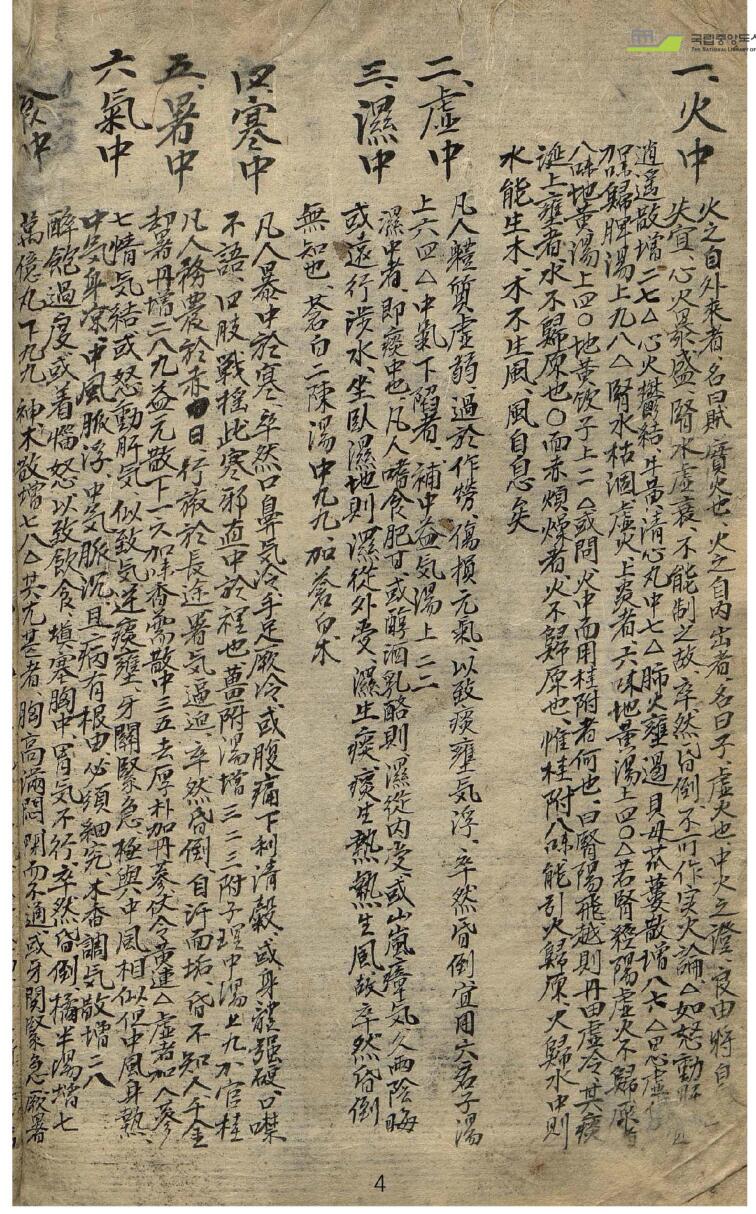 국립중앙도서
THE NATIONAL LIBRARY OF
一、火中
火之自外來者、名曰賊、實火也、火之自內出者、名曰子、虛火也、中火之證、良由將息
失宜、心火暴盛、腎水虛衰、不能制之故、卒然昏倒、不可作实火論△如怒動肝火
逍遙散增二七△心火鬱結牛黃清心丸中七△肺火壅遏貝母苽蔞散增八六△思慮
加味歸脾湯上九八△腎水枯涸、虛火上炎者、六味地黃湯上四○△若腎經陽虛火不歸原者
八味地黃湯上四○地黃饮子上二△或問火中而用桂附者何也、曰腎陽飛越則丹田虛冷、其痰
涎上壅者、水不歸原也○面赤煩燥者、火不歸原也、惟桂附八味、能引火歸原、火歸水中則
水能生木、木不生風、風自息矣
二、虛中
凡人軆質虛弱、過於作劳、傷損元氣、以致痰壅気浮、卒然昏倒宜用六君子湯
上六四△中氣下陷者、補中益気湯上二二
三、濕中
濕中者、即痰中也、凡人嗜食肥甘、或醇酒乳酪則濕從內受、或山嵐瘴気久雨陰晦
或遠行涉水、坐臥濕地則濕從外受、濕生痰、痰生熱、熱生風、故卒然昏倒
無知也、蒼白二陳湯中九九、加蒼白朮
四、寒中
凡人暴中於寒、卒然口鼻気冷、手足厥冷、或腹痛下利清穀、或身體强硬、口噤
不語、四肢戰搖此寒邪直中於裡也、薑附湯增三二三附子理中湯上九加官桂
五、暑中
凡人務農於赤日、行旅於長途暑気逼迫、卒然昏倒、自汗而垢、昏不知人、千金
却暑丹增二八九益元散下一六加味香需散中三五去厚朴加丹參伏令黃連△虛者加人參
六、氣中
七情気結或怒動肝気、似致気逆痰壅、牙關緊急極與中風相似但中風身熱、
中気身凉、中風脉浮、中気脉沉、且病有根由必須細究、木香調気散增二八
食中
醉飽過度或着惱怒以致飲食塡塞胸中胃気不行、卒然昏倒、橘半湯增七
萬億丸下九九神朮散增七八△其尤甚者、胸高滿悶閉而不通、或牙関緊急厥暑
4